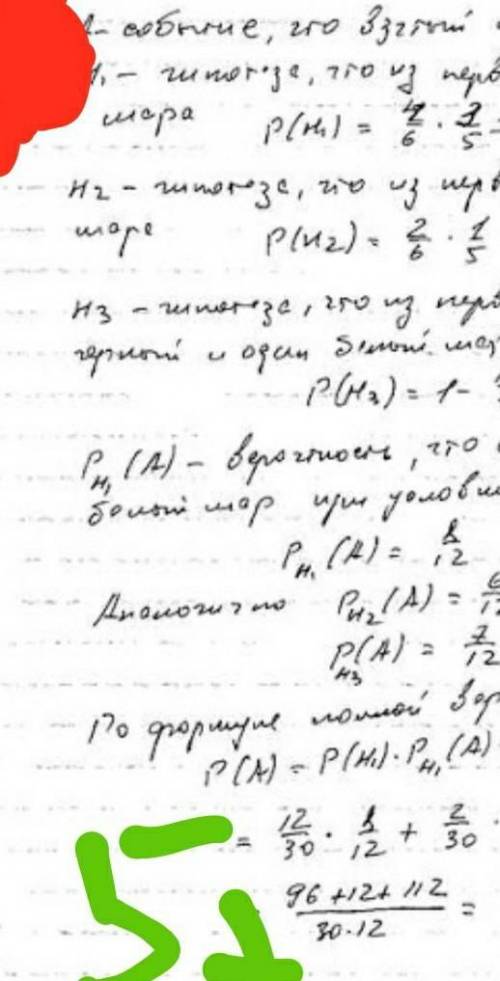 A - событие, что взятый
H₁ - гипотеза, что из перв
шара P(H₁) = 4/6 · 3/5
H₂ - гипотеза, что из перв
шара P(H₂) = 2/6 · 1/5
H₃ - гипотеза, что из перв
черный и один белый шар
P(H₃) = 1 -
P_H₁(A) - вероятность, что
белый шар при услови
P_H₁(A) = 8/12
Аналогично P_H₂(A) = 6/12
P_H₃(A) = 7/12
По формуле полной вер
P(A) = P(H₁) · P_H₁(A)
= 12/30 · 8/12 + 2/30 ·
(96 + 12 + 112)/(30 · 12) =
5+